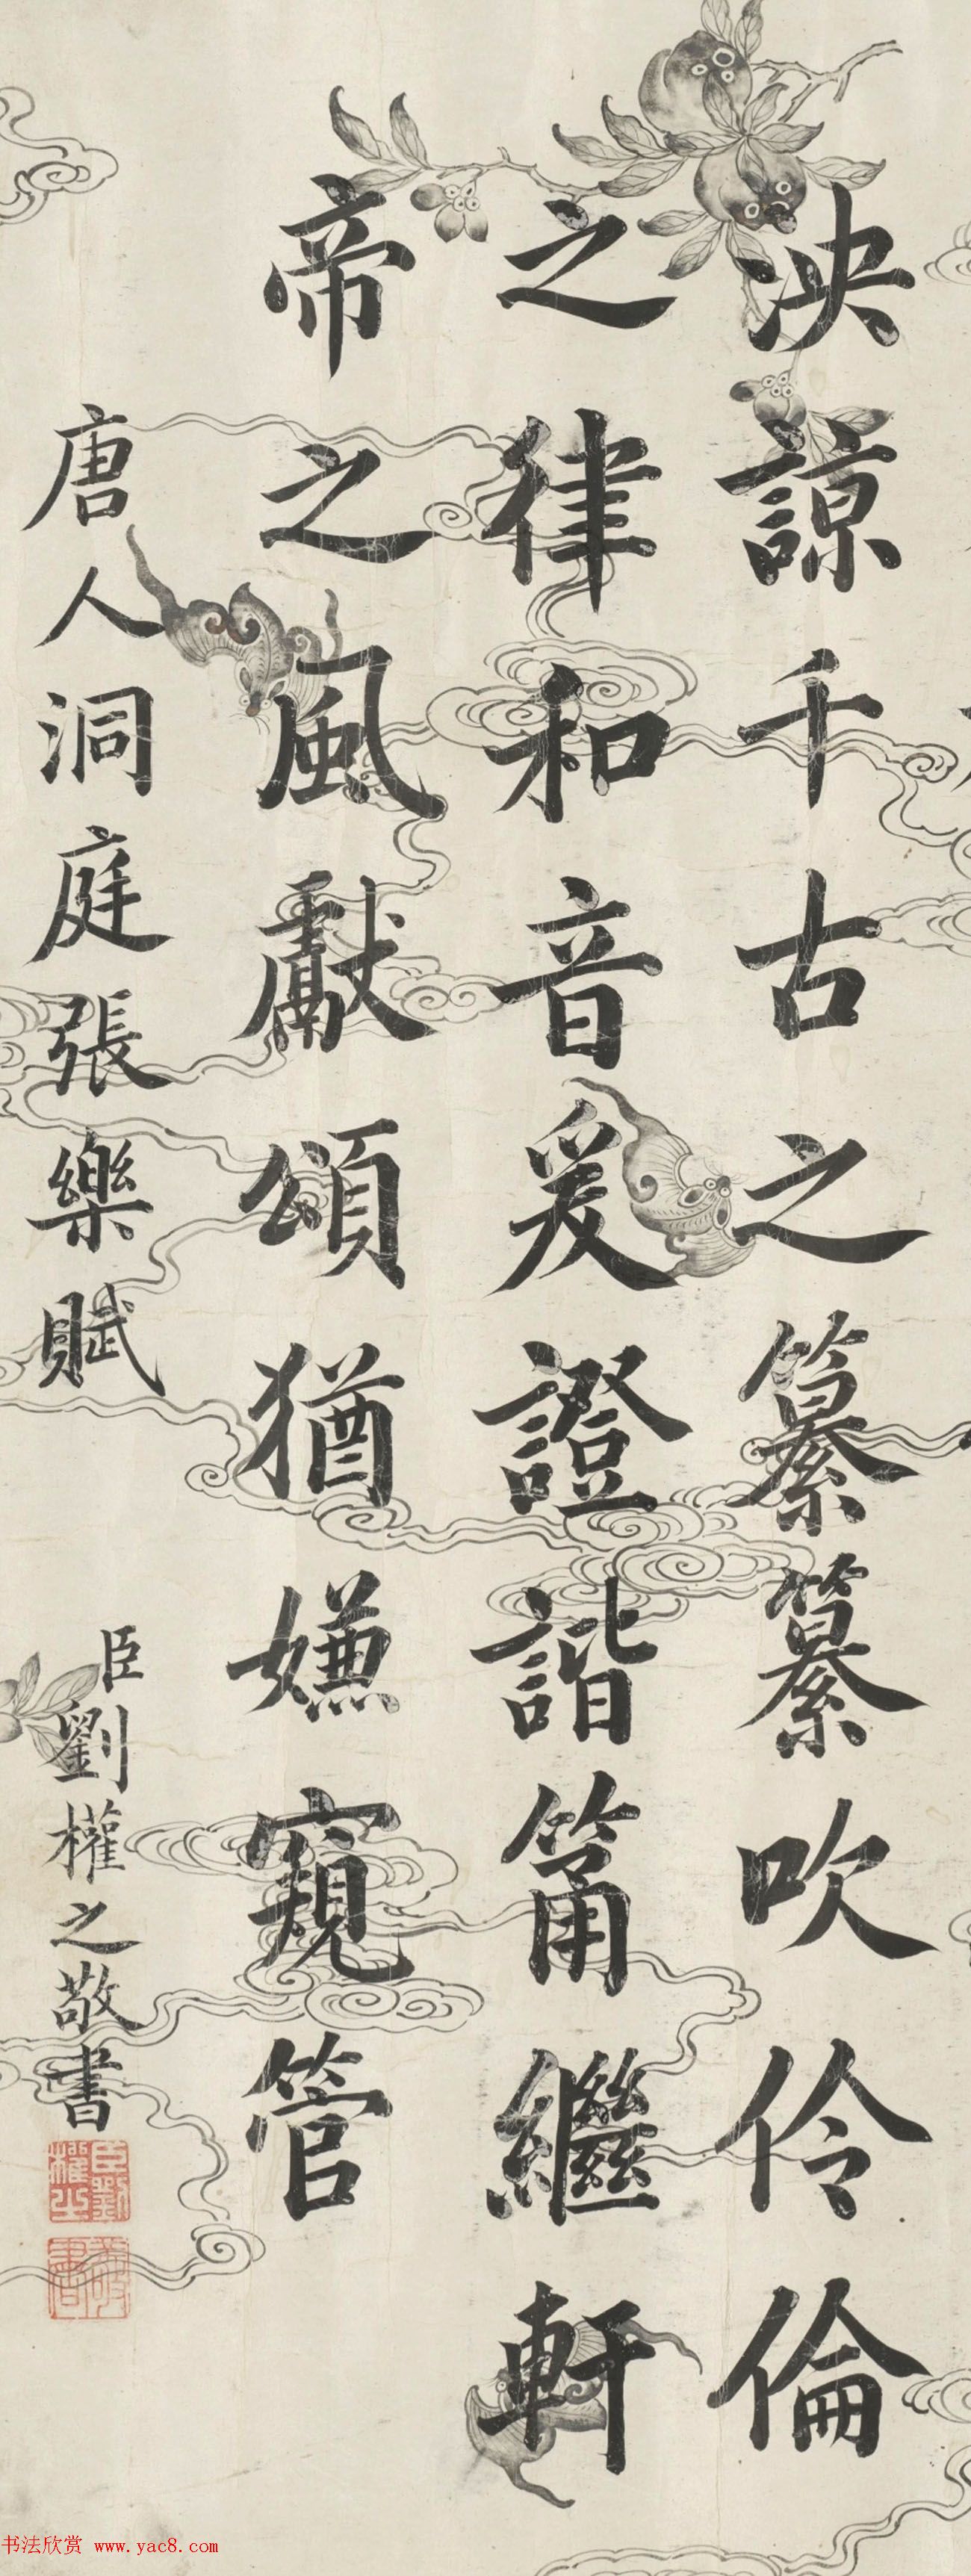 泱諒千古之纂纂吹伶倫
之律和音爰證諧筩繼軒
帝之風獻頌猶嫌窺管
唐人洞庭張樂賦
臣劉權之敬書
臣劉權之
书法欣赏 www.yac8.com